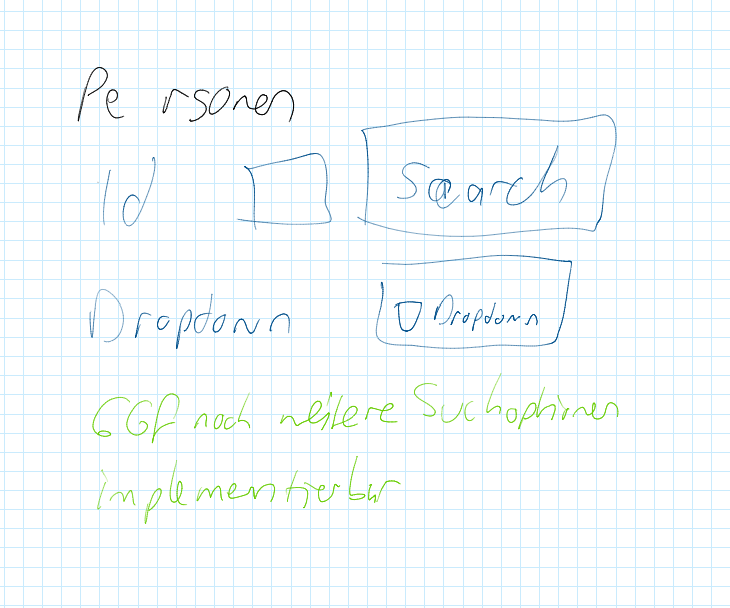 Personen
Id Search
Dropdown Dropdown
GGf noch weitere Suchoptionen
implementierbar